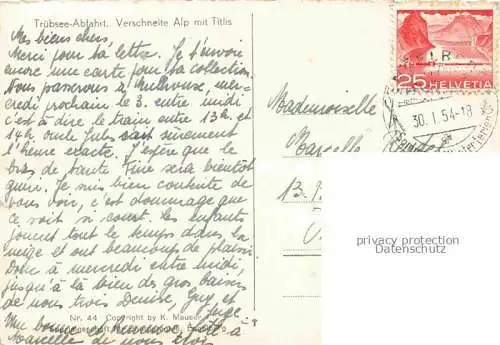 Trübsee-Abfahrt. Verschneite Alp mit Titlis
Mes biens chers,
Merci pour ta lettre. Je t'envoie
encore une carte pour ta collection.
Nous passerons à Mulhouse, mer-
credi prochain le 3. entre midi
c'est à dire le train entre 13h. et
14h. oncle Jules sait sûrement
l'heure exacte. J'espère que le
bras de tante Fine sera bientôt
guéri. Je suis bien contente de
vous voir, c'est dommage que
ce soit si court. Les enfants
jouent tout le temps dans la
neige et ont beaucoup de plaisir.
Donc à mercredi entre midi,
jusqu'à là bien des gros baisers
de nous trois Denise, Guy et
Nr. 44 Copyright by K. Meuser
Marcelle de nous trois
25 HELVETIA
30.I.54-18
Mademoiselle
Marcelle
13.
privacy protection
Datenschutz